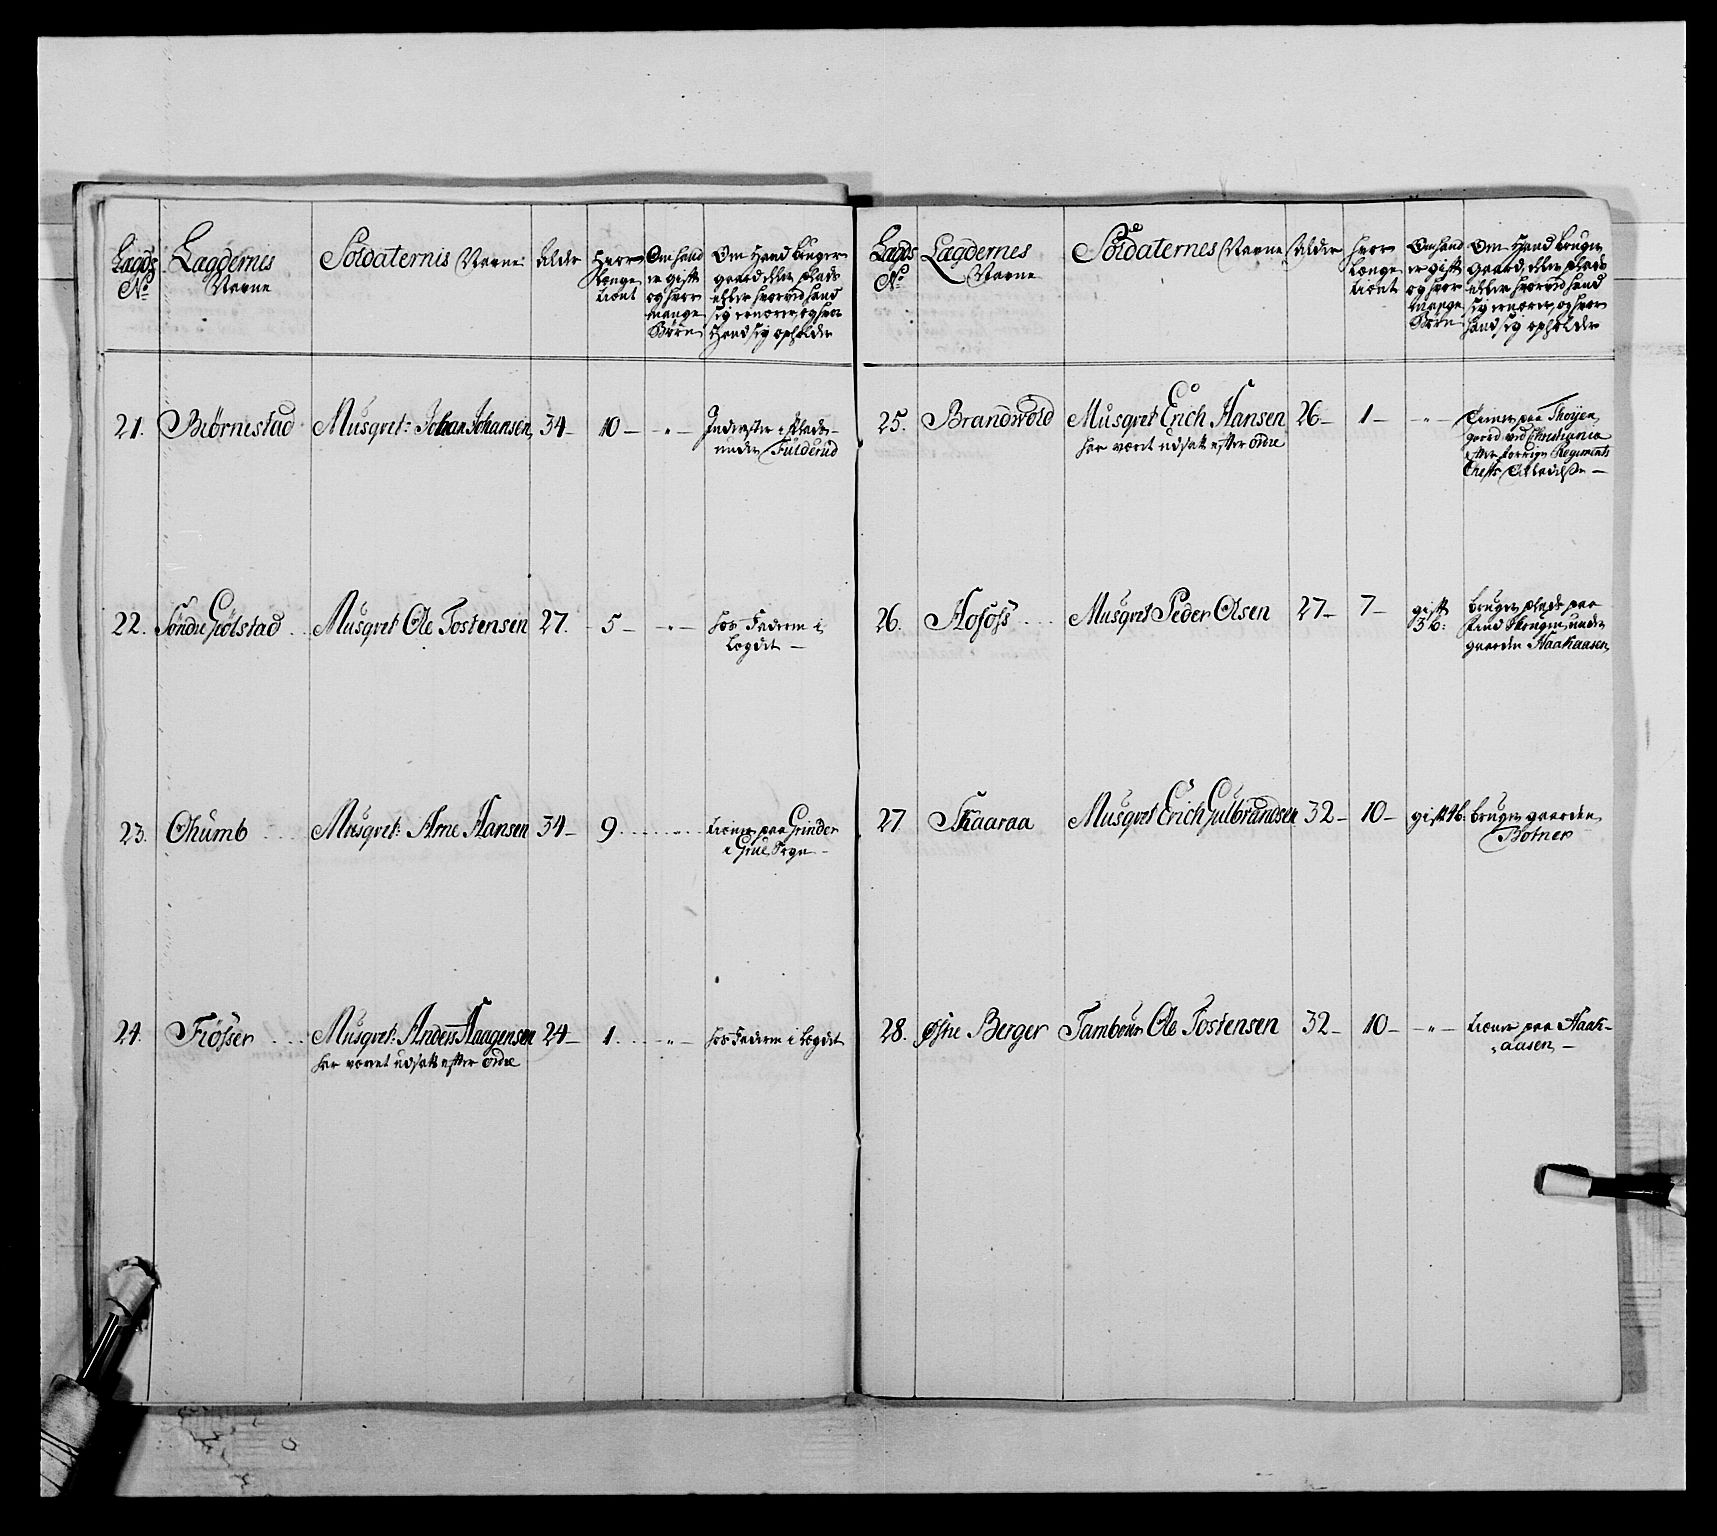 Lægds No
Lægdernis Navne
Soldaternis Navne
Alder
Hvor Længe tient
Om hand er gift og hvor mange Børn
Om Hand bruger gaard eller plads eller hvorved hand sig ernærer, og hvor Hand sig opholder
21. Biörnestad Musqret: Johan Johansen, 34– 10– –„– Inderster i Plads
under Fulderud
22. Söndre Giölstad .. Musqret Ole Tostensen 27. 5– –„– hos Faderen i
Legdet –
23. Ohumb .... Musqret: Arne Hansen 34– 9. ..... tiener paa Grinder
i Grue Sogn –
24. Frösser .... Musqret: Anders Haagensen 24– 1. ... –„– hos Faderen i Legdet
har været udsatt efter ordre
Lægds No
Lægdernes Navne
Soldaternes Navne
Alder
hvor Længe tient
Om hand er gift og hvor mange Børn
Om Hand bruger gaard, eller plads eller hvorved hand sig ernærer, og hvor hand sig opholder
25. Brandwold Musqret Erich Hansen 26– 1– –„– Tiener paa Thoijen
gaard ved Christiania
efter forrige Regiments
Chefs Tilladelse –
har været udsatt efter ordre
26. Hofoss .... Musqret Peder Olsen 27– 7– gift
3 b: bruger plads paa
under
gaarden Haakaasen,
27 Skaaraa Musqret Erich Gulbrandsen 32– 10– gift 4b: bruger gaarden
Botner
28. Østre Berger Tambour Ole Tostensen 32– 10– –„– tiener paa Haak-
aasen, –